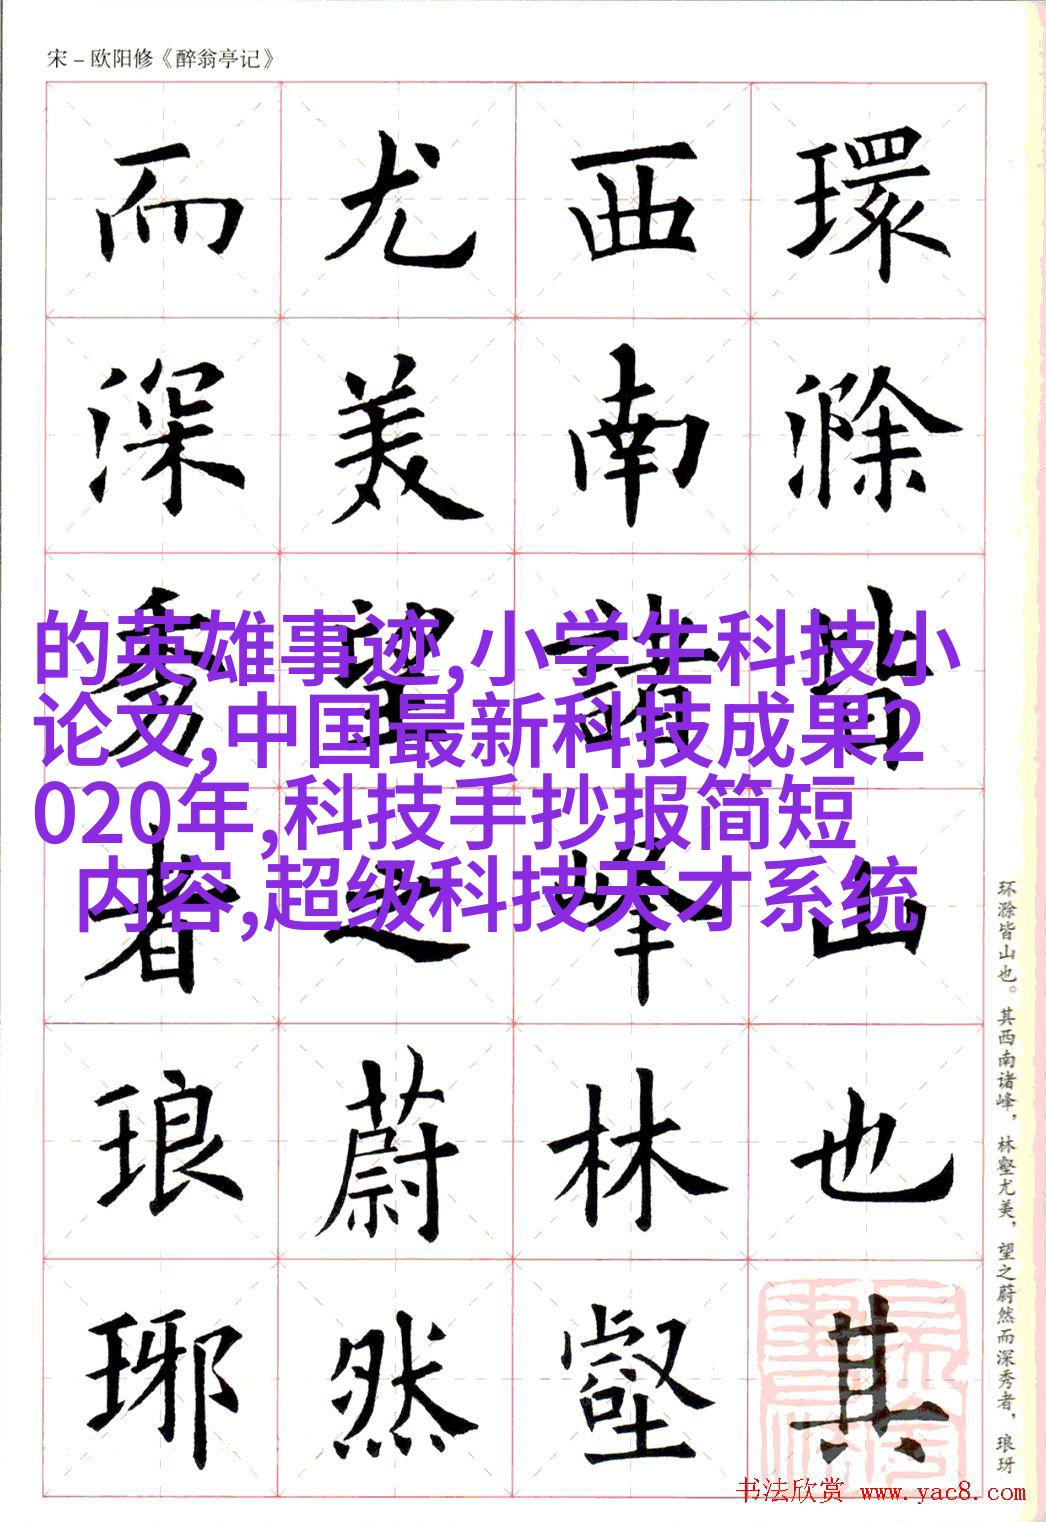 宋－欧阳修《醉翁亭记》
環滁皆山也其
西南諸峰林壑
尤美望之蔚然
而深秀者琅琊
的英雄事迹,小学生科技小
论文,中国最新科技成果2
020年,科技手抄报简短
内容,超级科技天才系统
环滁皆山也。其西南诸峰，林壑尤美，望之蔚然而深秀者，琅玡
书法欣赏 www.yac8.com